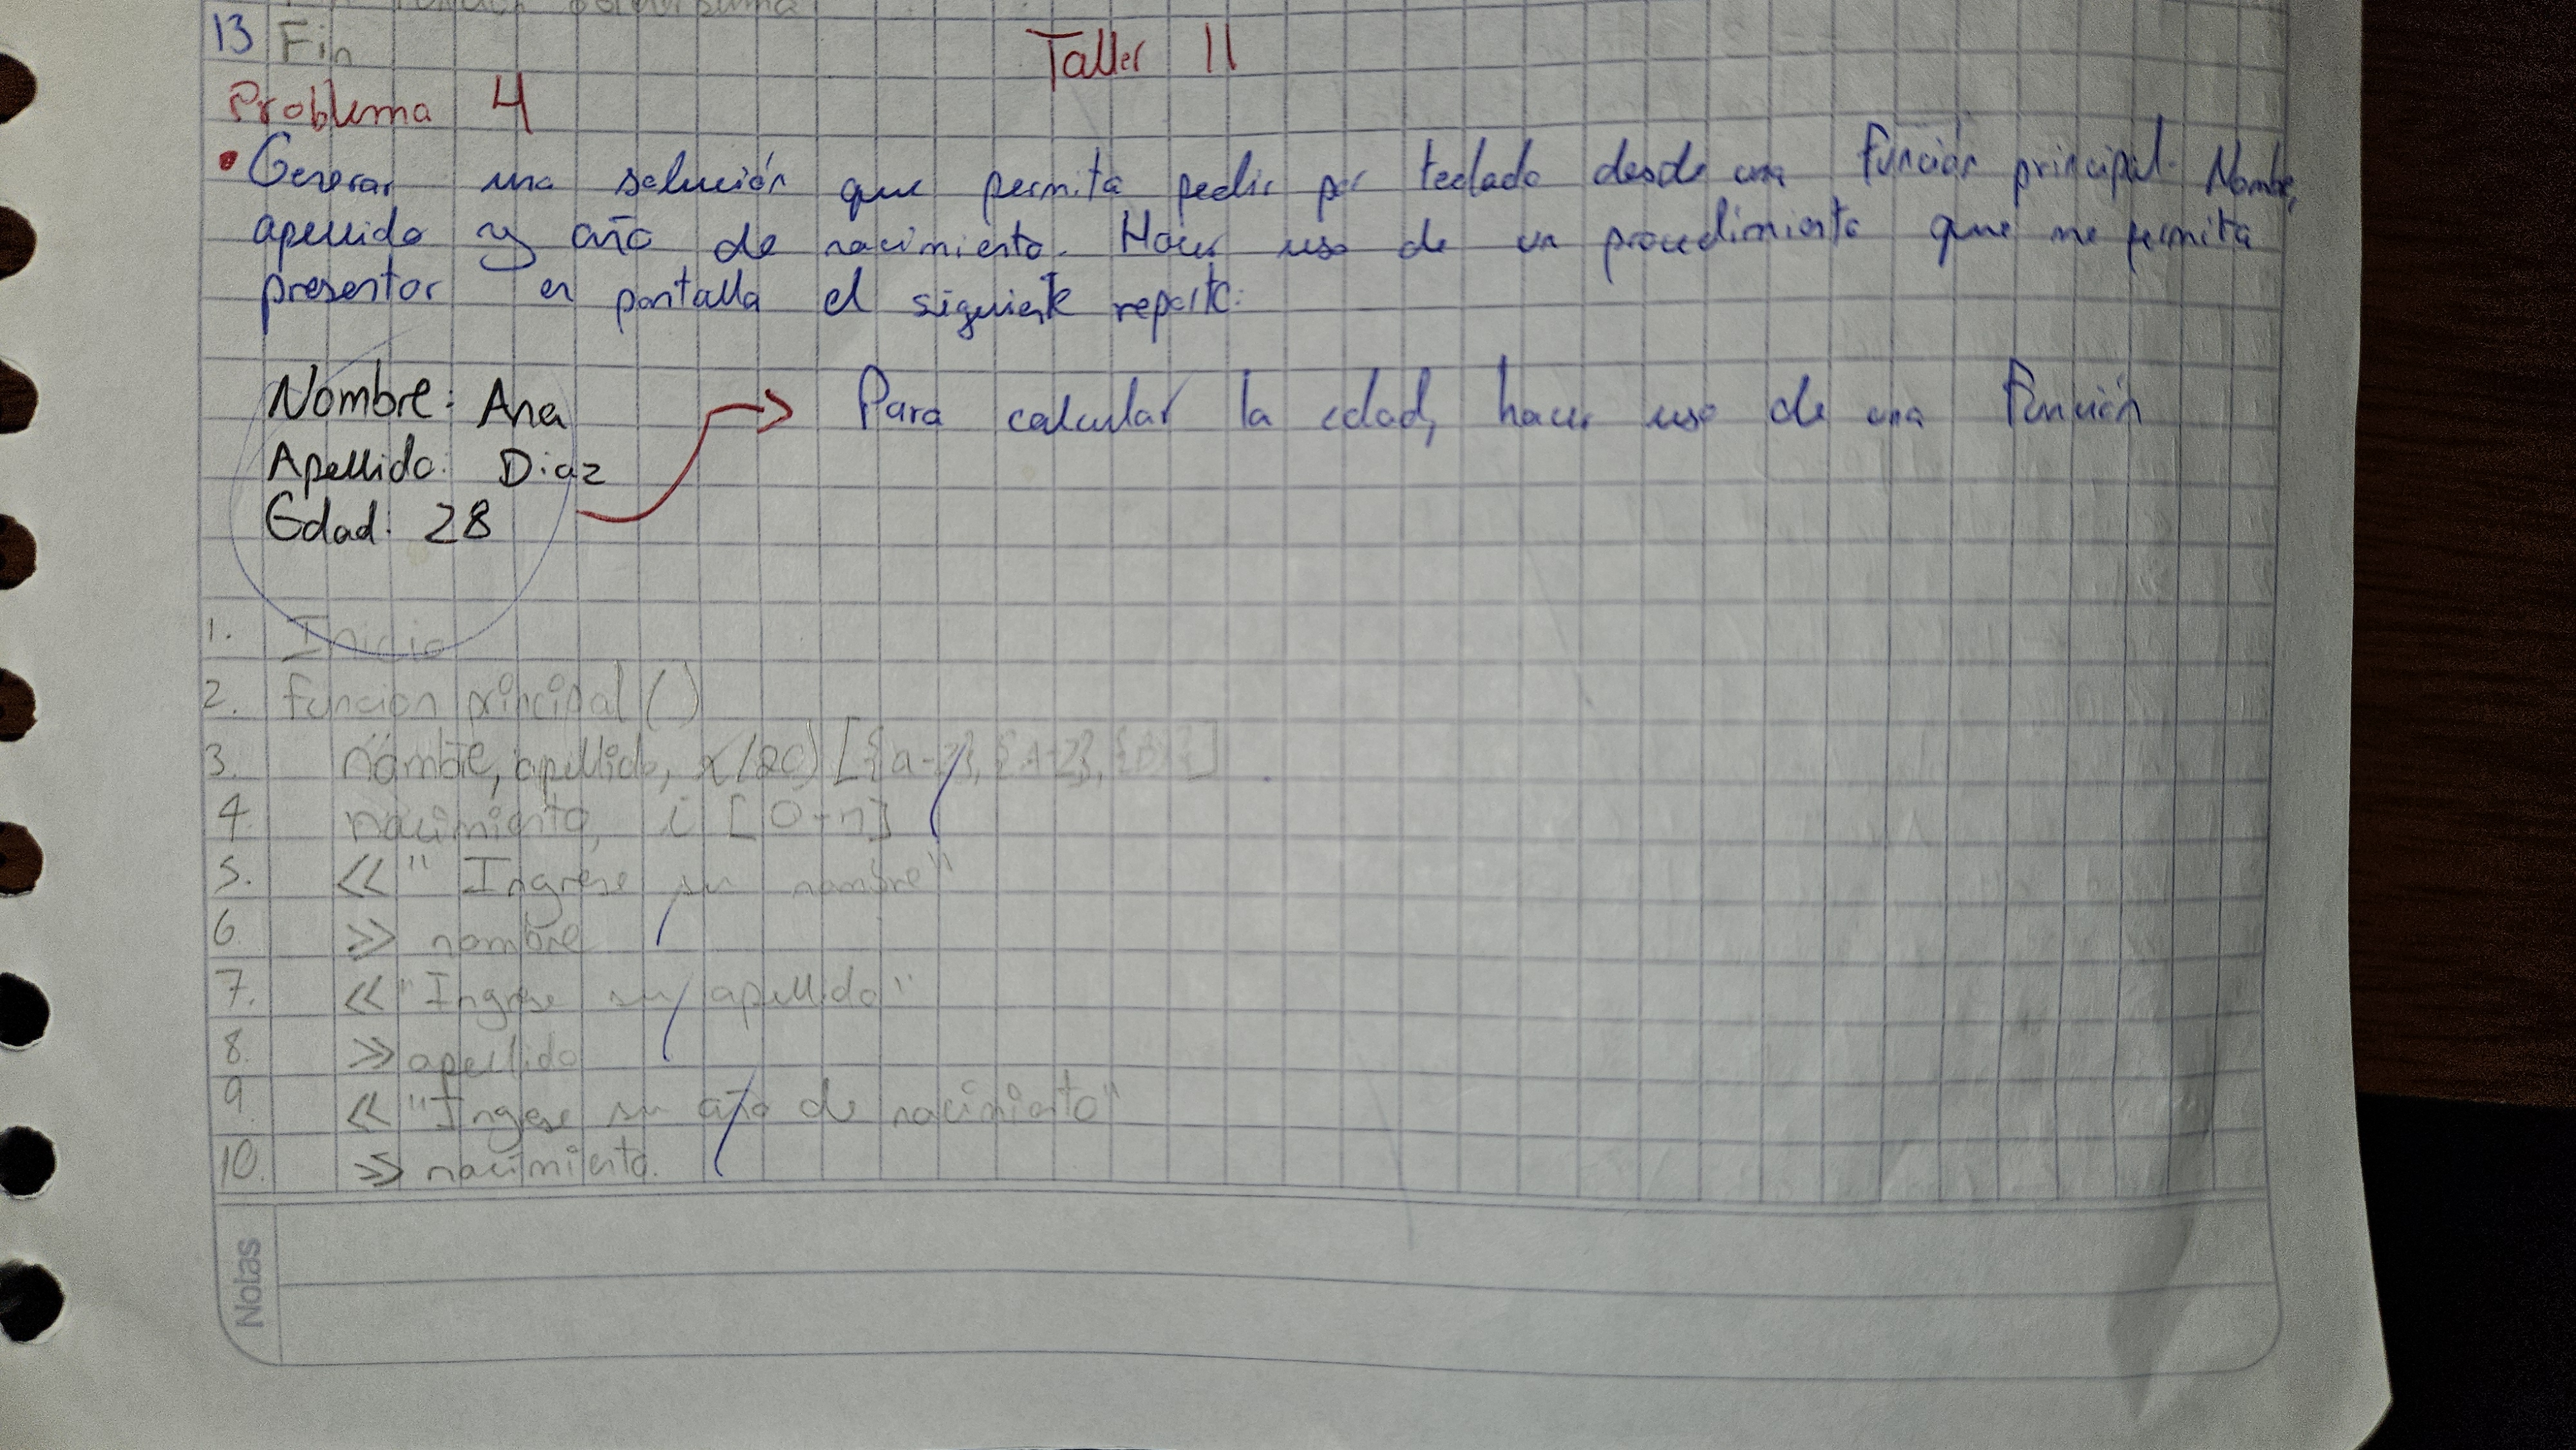 13 Fin
Taller 11
Problema 4
• Generar una solución que permita pedir por teclado desde una función principal. Nombre,
apellido y año de nacimiento. Hacer uso de un procedimiento que me permita
presentar en pantalla el siguiente reporte:
Nombre: Ana
Para calcular la edad, hacer uso de una Función
Apellido: Diaz
Edad: 28
1. Inicio
2. funcion principal ()
3. nombre, apellido, x(20) [{a-z}, {A-Z}, ]
4. nacimiento, i [0-n]
5. << "Ingrese su nombre"
6. >> nombre
7. << "Ingrese su apellido"
8. >> apellido
9. << "Ingrese su año de nacimiento"
10. >> nacimiento.
Notas